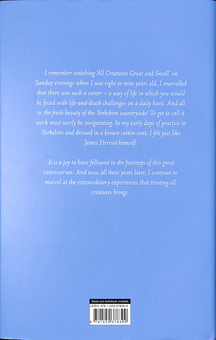 I remember watching 'All Creatures Great and Small' on
Sunday evenings when I was eight or nine years old. I marvelled
that there was such a career – a way of life in which you would
be faced with life-and-death challenges on a daily basis. And all
in the fresh beauty of the Yorkshire countryside! To get to call it
work must surely be invigorating. In my early days of practice in
Yorkshire and dressed in a brown cotton coat, I felt just like
James Herriot himself.
It is a joy to have followed in the footsteps of this great
veterinarian. And now, all these years later, I continue to
marvel at the extraordinary experiences that treating all
creatures brings.